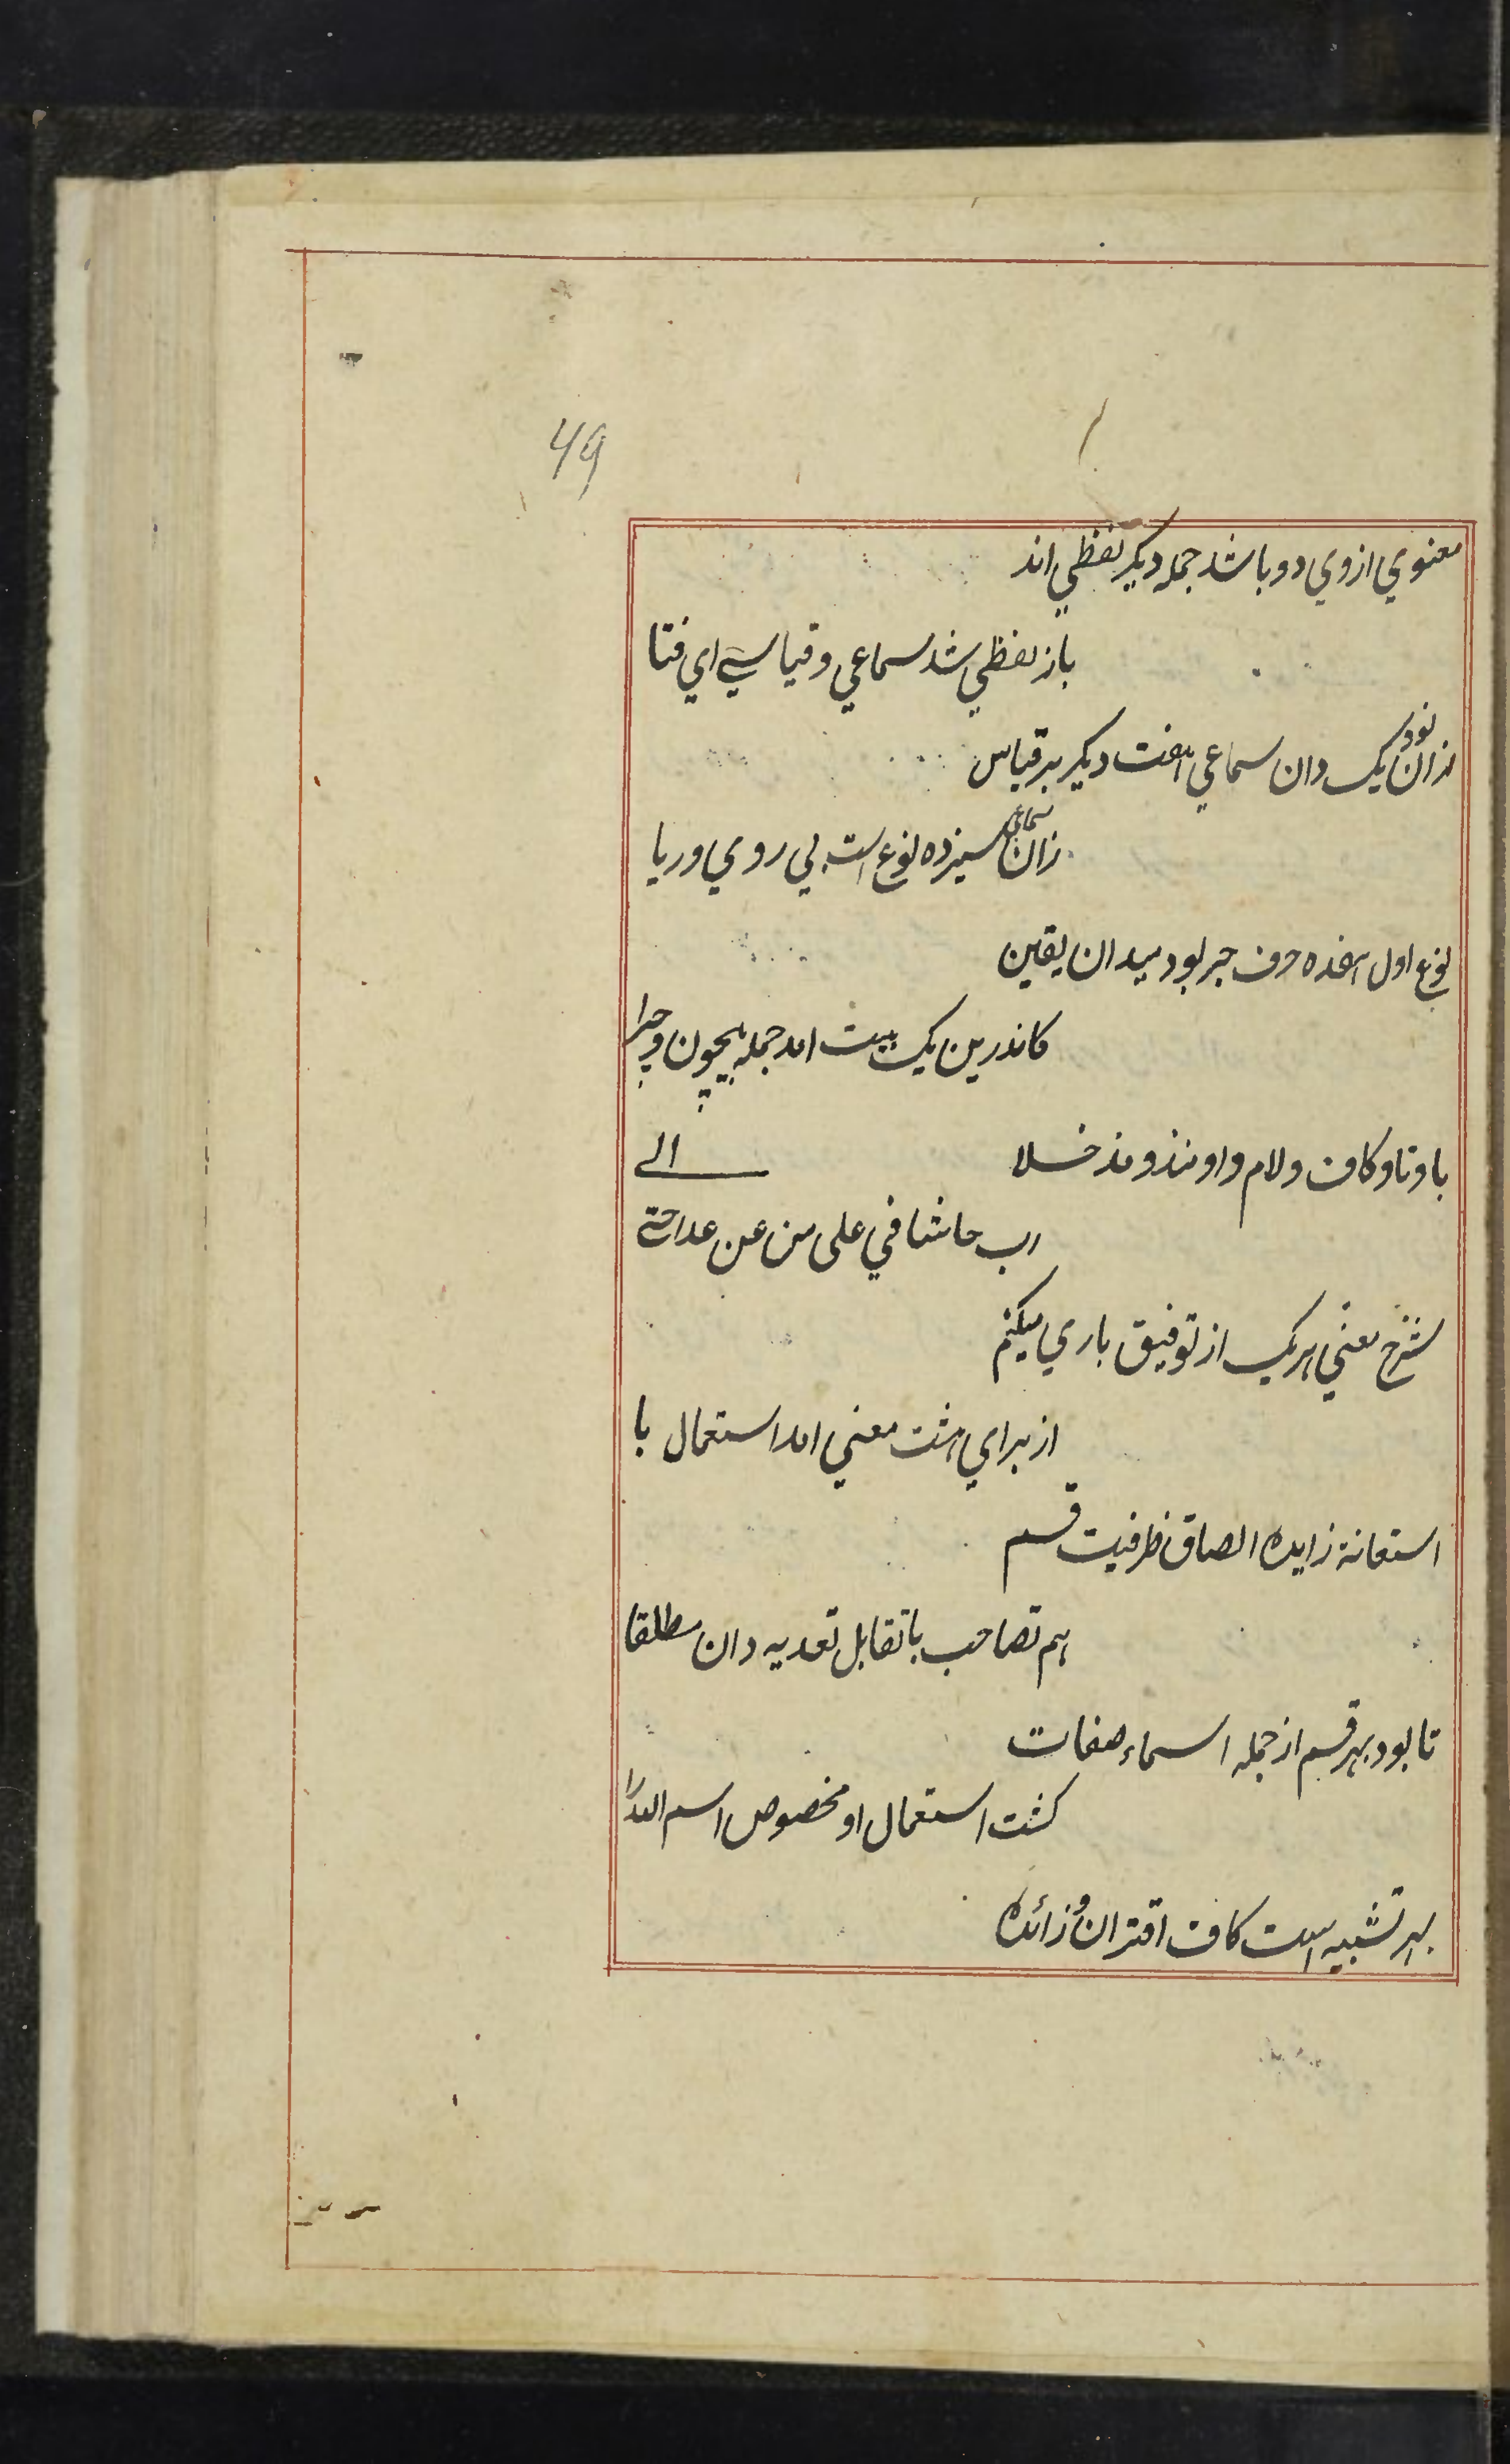 49
معنوي ازوي دو باشد جمله ديكر لفظي اند
باز لفظي شد سماعي و قياسي اي فتا
زان نود يک دان سماعي هفت ديكر بر قياس
زان سماعي سيزده نوع است بي روي و ريا
نوع اول هفده حرف جر بود ميدان يقين
كاندرين يک بيت امد جمله بيچون و چرا
با و تا و كاف و لام و او منذ و مذ خلا
رب حاشا في على من عن عدا حتى الى
شرح معني هر يک از توفيق باري ميكنم
از براي هشت معني امد استعمال با
استعانة زايده الصاق ظرفيت قسم
هم تصاحب با تقابل تعديه دان مطلقا
تا بود بهر قسم از جمله اسماء صفات
كشت استعمال او مخصوص اسم الله را
بهر تشبيه است كاف اقتران و زائده